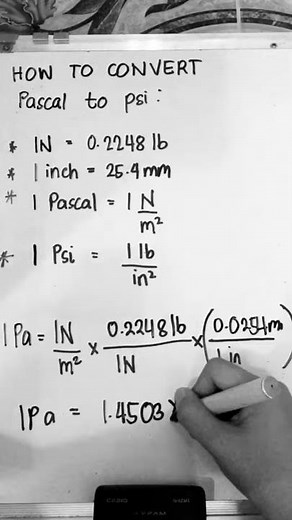 HOW TO CONVERT
Pascal to psi:
* 1N = 0.2248 lb
* 1 inch = 25.4 mm
* 1 Pascal = 1 N/m²
* 1 Psi = 1 lb/in²
1 Pa = 1N/m² × 0.2248 lb/1N × (0.0254m/1 in
1Pa = 1.4503 ×